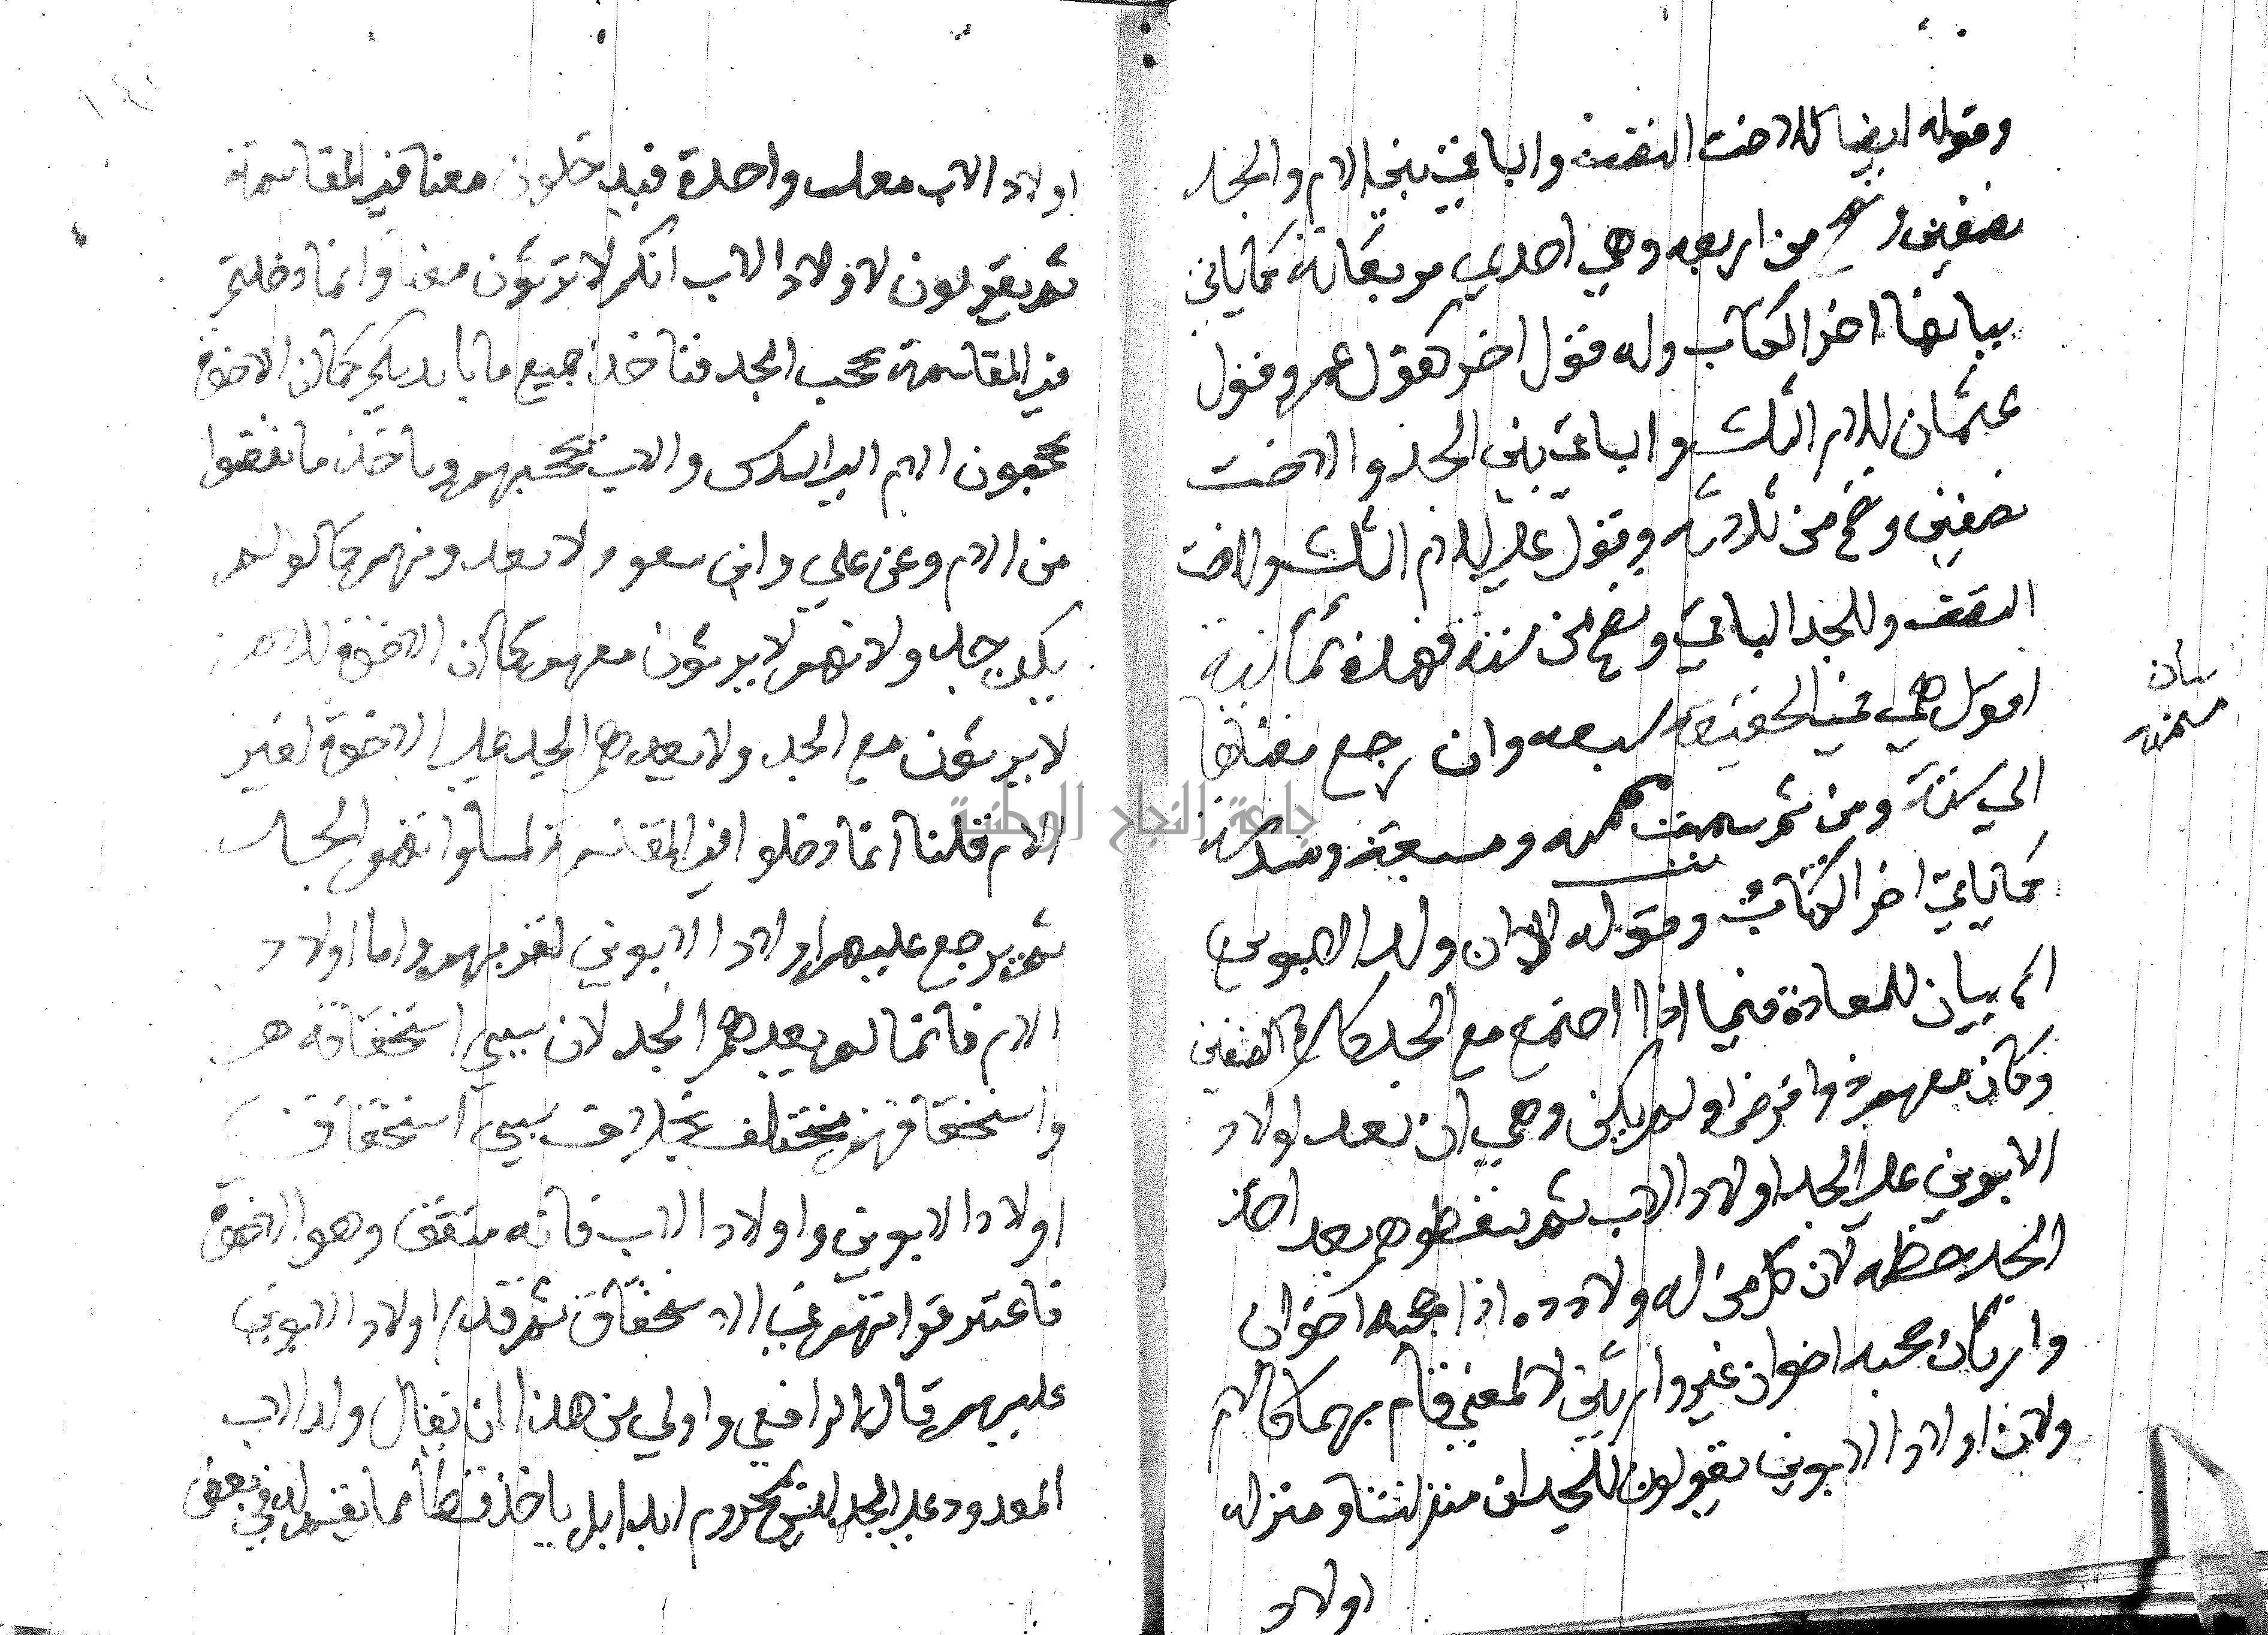 وقوله ايضا للاخت النصف والباقي بين الام والجد
نصفين وتصح من اربعه وهي احدي مربعاته كماياتي
بيانها اخر الكتاب وله قول اخر كقول عمر وقول
عثمان للام الثلث والباقي بين الجد والاخت
نصفين وتصح من ثلاثه وقول علي للام الثلث وللاخت
النصف وللجد الباقي وتصح من ستة فهذه ثمانية
اقوال هي في الحقيقه سبعه وان رجع معناها
الي ستة ومن ثم سميت مثمنه ومسبعة ومسدسة
كماياتي اخر الكتاب وقوله الان ولد الابوين
الم بيان للمعادة فيما اذا اجتمع مع الجد كلا الصنفين
وكان معهم ذوا فرض اولم يكن وهي ان تعد اولاد
الابوين علي الجد اولاد الاب ثم يسقطوهم بعد اخذ
الجد حظه لان كل من له ولادة اذا حجبه اخوان
وارثان حجبه اخوان غير وارثين لا لمعني قام بهما كالام
ولان اولاد الابوين يقولون للجد ان منزلتنا ومنزله
اولاد
بيان
مثمنه
اولاد الاب معك واحدة فيدخلون معنا في المقاسمة
ثم يقولون لاولاد الاب انكم لا ترثون معنا وانما دخلتم
في المقاسمة لحجب الجد فناخذ جميع ما بايديكم كما ان الاخوة
يحجبون الام الي السدس والاب يحجبهم وياخذ ما نقصوا
من الام وعن علي وابن مسعود لا تعدونهم كما لو لم
يكن جد ولانهم لا يرثون معهم كما ان الاخوة للام
لا يرثون مع الجد ولا يعدهم الجد علي الاخوة لغير
الام قلنا انما دخلوا في المقاسمة لمساواتهم الجد
ثم يرجع عليهم اولاد الابوين لقربهم واما اولاد
الام فانما لم يعدهم الجد لان سببي استحقاقه هو
واستحقاقهم مختلف بخلاف سببي استحقاق
اولاد الابوين واولاد الاب فانه متفق وهو الاخوة
فاعتبر قوتهم في الاستحقاق ثم قدم اولاد الابوين
عليهم قال الرافعي واولي من هذا ان يقال ولد الاب
المعدود علي الجد ليس بمحروم ابدا بل ياخذ قسطا مما يقسم له في بعض